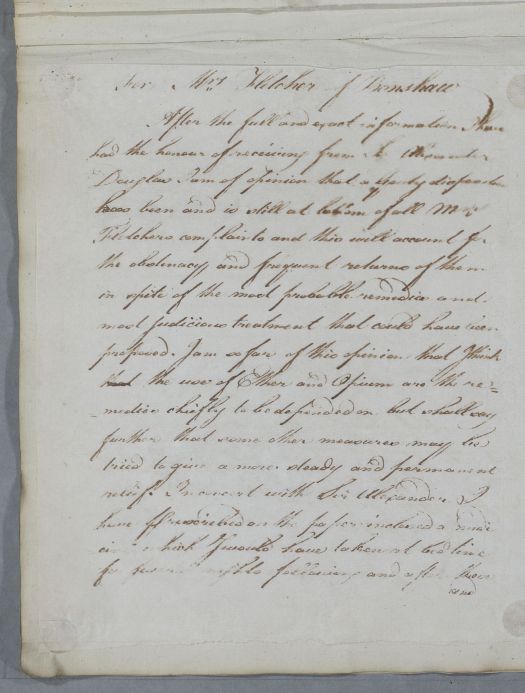 For Mrs Fletcher of Bonshaw
After the full and exact information I have
had the honour of receiving from Sir Alexander
Douglas I am of opinion that a gouty disposition
has been and is still at bottom of all Mrs
Fletchers complaints and this will account for
the obstinacy and frequent returns of them
in spite of the most probable remedies and
most judicious treatment that could have been
proposed. I am so far of this opinion that I think
that the use of Ether and Opium are the re=
medies chiefly to be depended on but shall say
further that some other measures may be
tried to give a more steady and permanent
relief. In concert with Sir Alexander I
have prescribed on the paper inclosed a medi
cine which I would have taken at bed time
for several nights following and after them
and